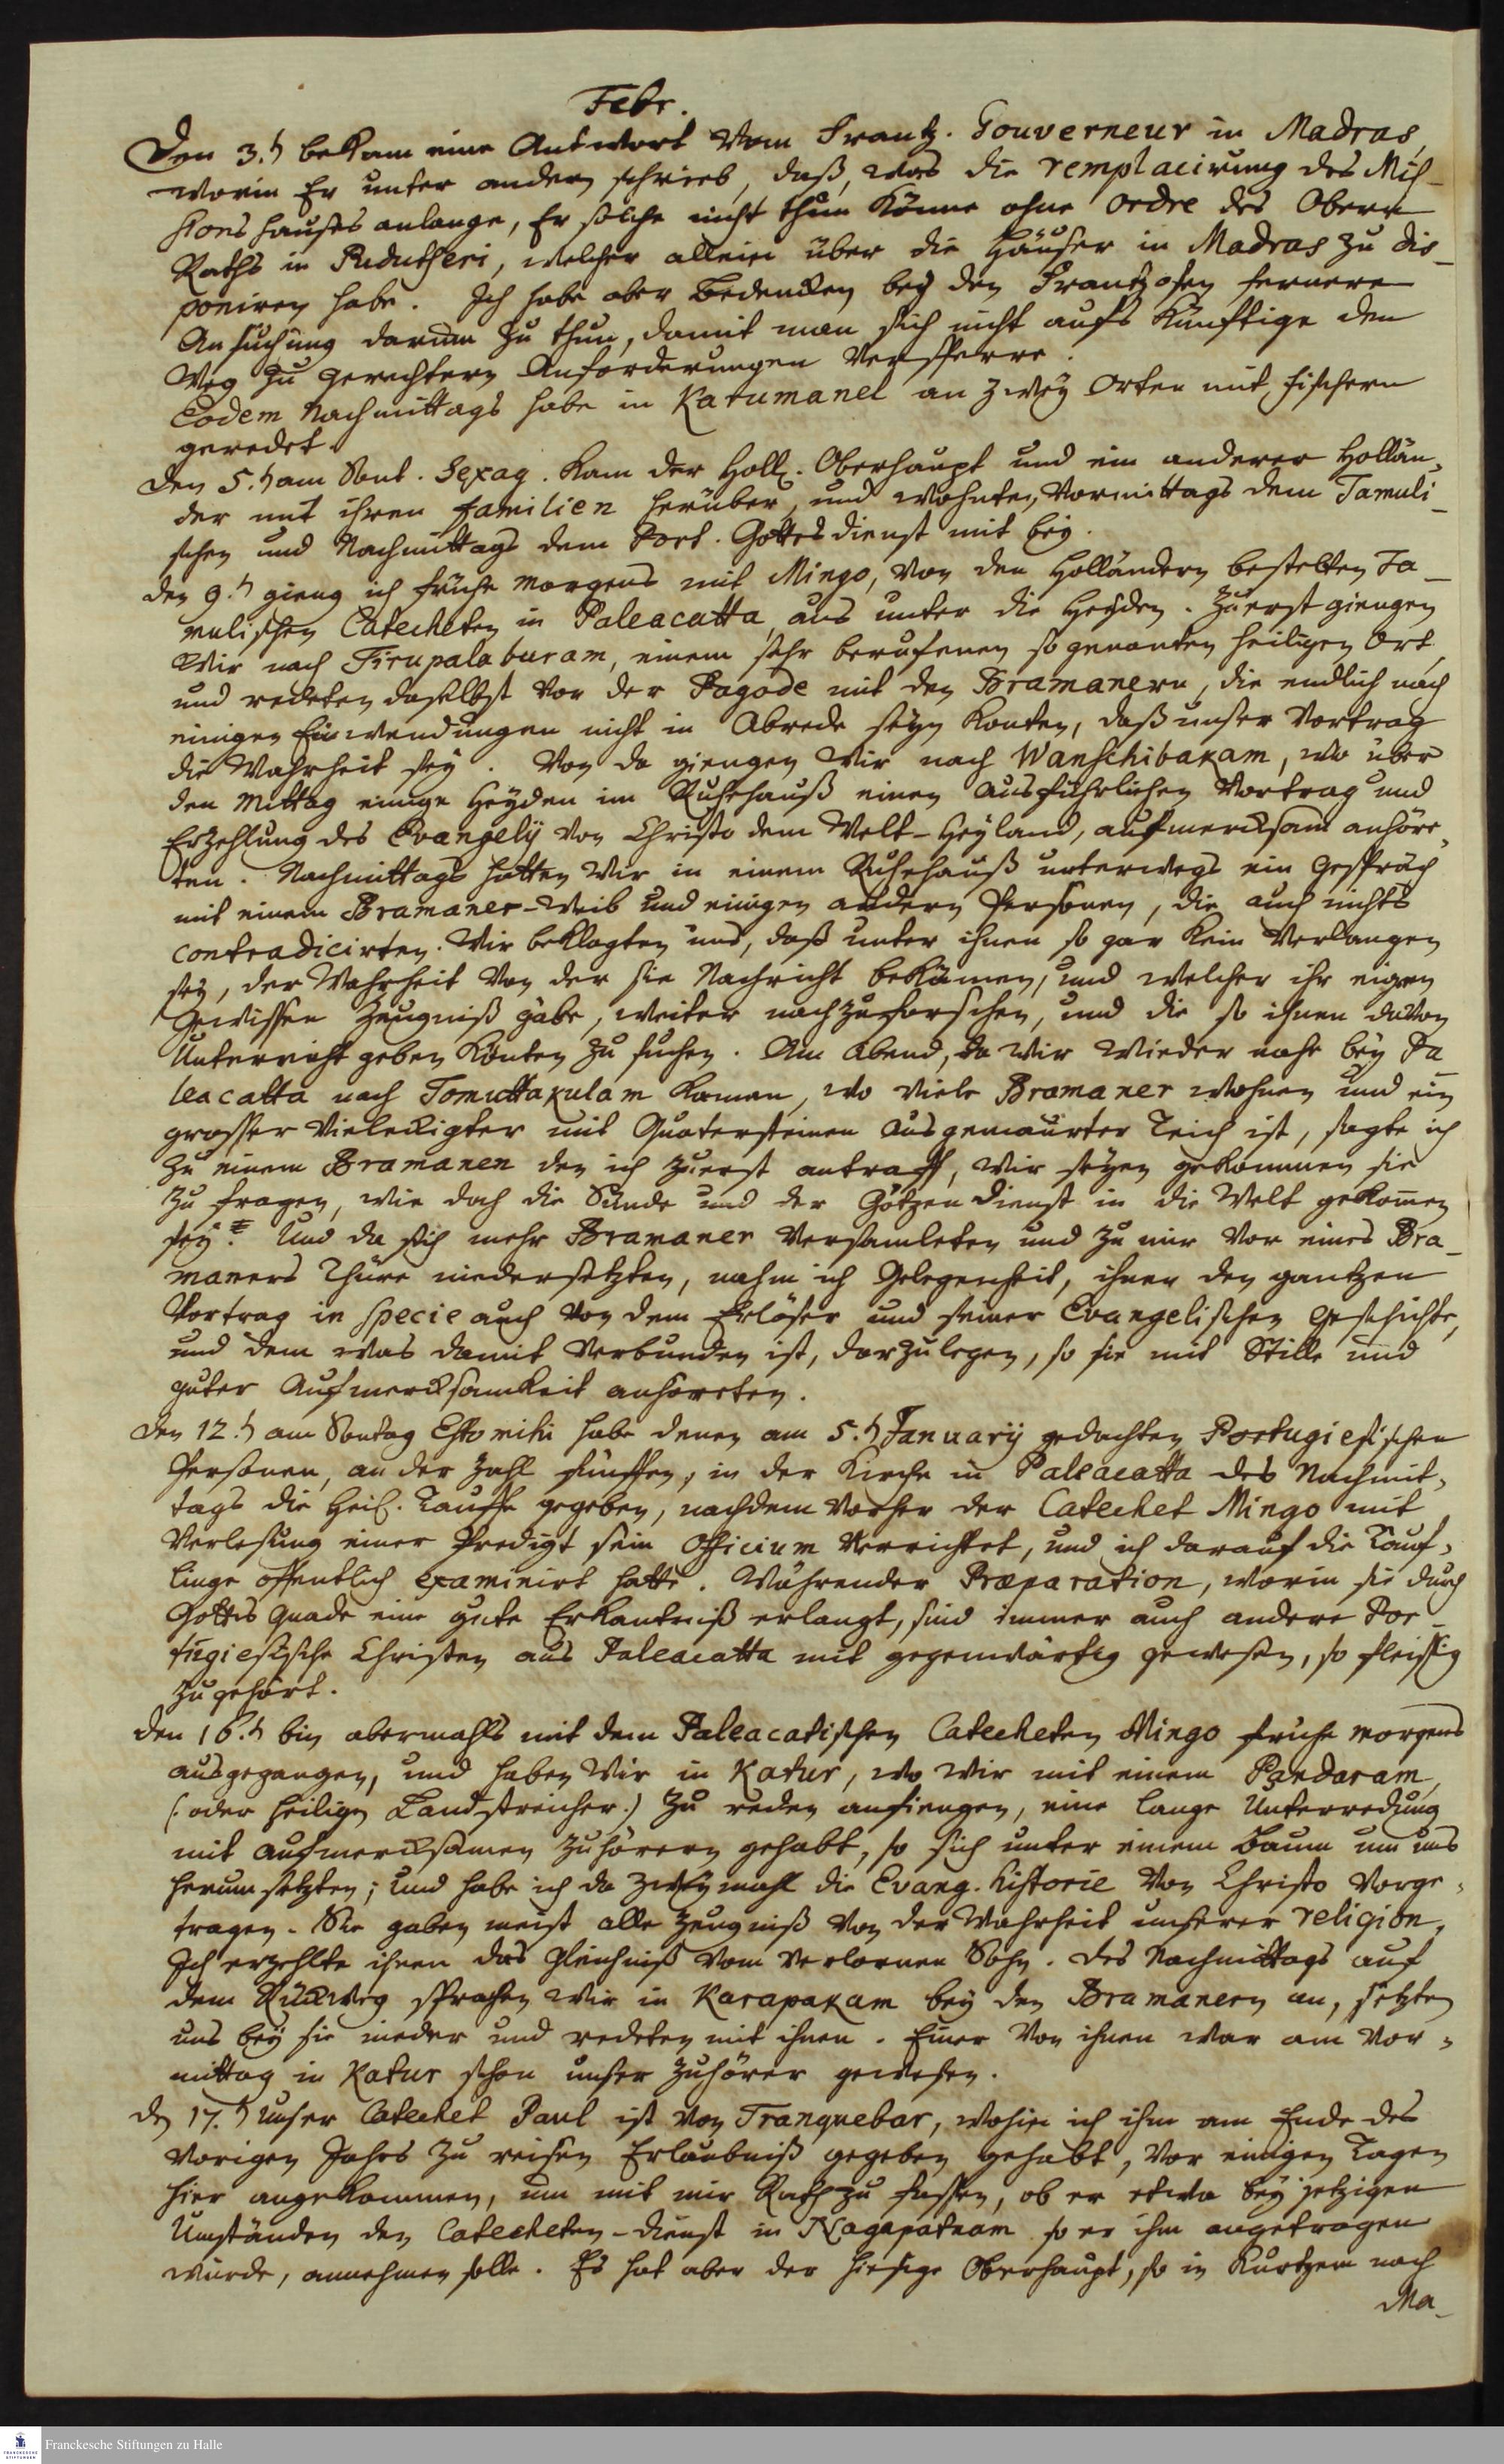 Febr.
Den 3.t bekam eine Antwort vom Frantz. Gouverneur in Madras,
worin Er unter andern schrieb, daß, was die remplacirung des Miß-
sionshauses anlange, Er solche nicht thun könne ohne ordre des Obern
Raths in Pudutscheri, welcher allein über die Häuser in Madras zu dis-
poniren habe. Ich habe aber Bedencken bey den Frantzosen fernere
Ansuchung darum zu thun, damit man sich nicht aufs künftige den
Weg zu gerechtern Anforderungen versperre.
Eodem Nachmittags habe in Katumanel an zwey Orten mit Fischern
geredet.
Den 5.t am Sont. Sexag. kam der Holl. Oberhaupt und ein anderer Hollän-
der mit ihren familien herüber, und wohnten Vormittags dem Tamuli-
schen und Nachmittags dem Port. Gottesdienst mit bey.
den 9.t gieng ich frühe morgens mit Mingo, von den Holländern bestelten Ta-
mulischen Catecheten in Paleacatta, aus unter die Heyden. Zuerst giengen
Wir nach Tirupalaburam, einem sehr beruffenen so genanten heiligen Ort,
und redeten daselbst vor der Pagode mit den Bramanern, die endlich nach
einigen Einwendungen nicht in Abrede seyn konten, daß unser Vortrag
die Wahrheit sey. Von da giengen Wir nach Wanschibakam, wo über
den Mittag einige Heyden im Ruhehauß einen ausführlichen Vortrag und
Erzehlung des Evangelÿ von Christo dem Welt-Heyland, aufmercksam anhöre-
ten. Nachmittags hatten Wir in einem Ruhehauß unterwegs ein Gespräch
mit einem Bramaner-Weib und einigen andern Personen, die auch nichts
contradicirten. Wir beklagten uns, daß unter ihnen so gar kein Verlangen
sey, der Wahrheit von der sie Nachricht bekämen, und welcher ihr eigen
Gewissen Zeugniß gäbe, weiter nachzuforschen, und die so ihnen davon
Unterricht geben könten zu suchen. Am Abend, da wir wieder nahe bey Pa-
leacatta nach Tomuttakulam kamen, wo viele Bramaner wohnen und ein
grosser Vieleckigter mit Quatersteinen ausgemaurter Teich ist, sagte ich
zu einem Bramanen den ich zuerst antraff, Wir seyen gekommen sie
zu fragen, wie doch die Sünde und der Götzendienst in die Welt gekom̅en
sey? Und da sich mehr Bramaner versamleten und zu mir vor eines Bra-
maners Thüre niedersetzten, nahm ich Gelegenheit, ihnen den gantzen
Vortrag in specie auch von dem Erlöser und seiner Evangelischen Geschichte,
und dem was damit verbunden ist, darzulegen, so sie mit Stille und
guter Aufmercksamkeit anhöreten.
den 12.t am Sontag Estomihi habe denen am 5.t Januarÿ gedachten Portugiesischen
Personen, an der Zahl fünffen, in der Kirche in Paleacatta des Nachmit-
tags die Heil. Tauffe gegeben, nachdem vorher der Catechet Mingo mit
Verlesung einer Predigt sein Officium verrichtet, und ich darauf die Täuf-
linge öffentlich examinirt hatte. Währender Præparation, worin sie durch
Gottes Gnade eine gute Erkäntniß erlangt, sind immer auch andere Por-
tugiesische Christen aus Paleacatta mit gegenwärtig gewesen, so fleissig
zugehört.
den 16.t bin abermahls mit dem Paleacatischen Catecheten Mingo frühe morgens
ausgegangen, und haben Wir in Katur, wo wir mit einem Pandaram,
(: oder heiligen Landstreicher :) zu reden anfiengen, eine lange Unterredung
mit aufmercksamen Zuhörern gehabt, so sich unter einem Baum um uns
herum setzten; und habe ich da zweymahl die Evang. Historie von Christo vorge-
tragen. Sie gaben meist alle Zeugniß von der Wahrheit unserer religion.
Ich erzehlte ihnen das Gleichniß vom verlornen Sohn. Des Nachmittags auf
dem Rückweg sprachen wir in Karapakam bey den Bramanern an, setzten
uns bey sie nieder und redeten mit ihnen. Einer von ihnen war am Vor-
mittag in Katur schon unser Zuhörer gewesen.
den 17.t Unser Catechet Paul ist von Tranquebar, wohin ich ihm am Ende des
vorigen Jahrs zu reisen Erlaubniß gegeben gehabt, vor einigen Tagen
hier angekommen, um mit mir Rath zu fassen, ob er etwa bey jetzigen
Umständen den Catecheten-dienst in Nagapatnam so er ihm angetragen
würde, annehmen solle. Es hat aber der hiesige Oberhaupt, so in kurtzem nach
Ma-
Franckesche Stiftungen zu Halle